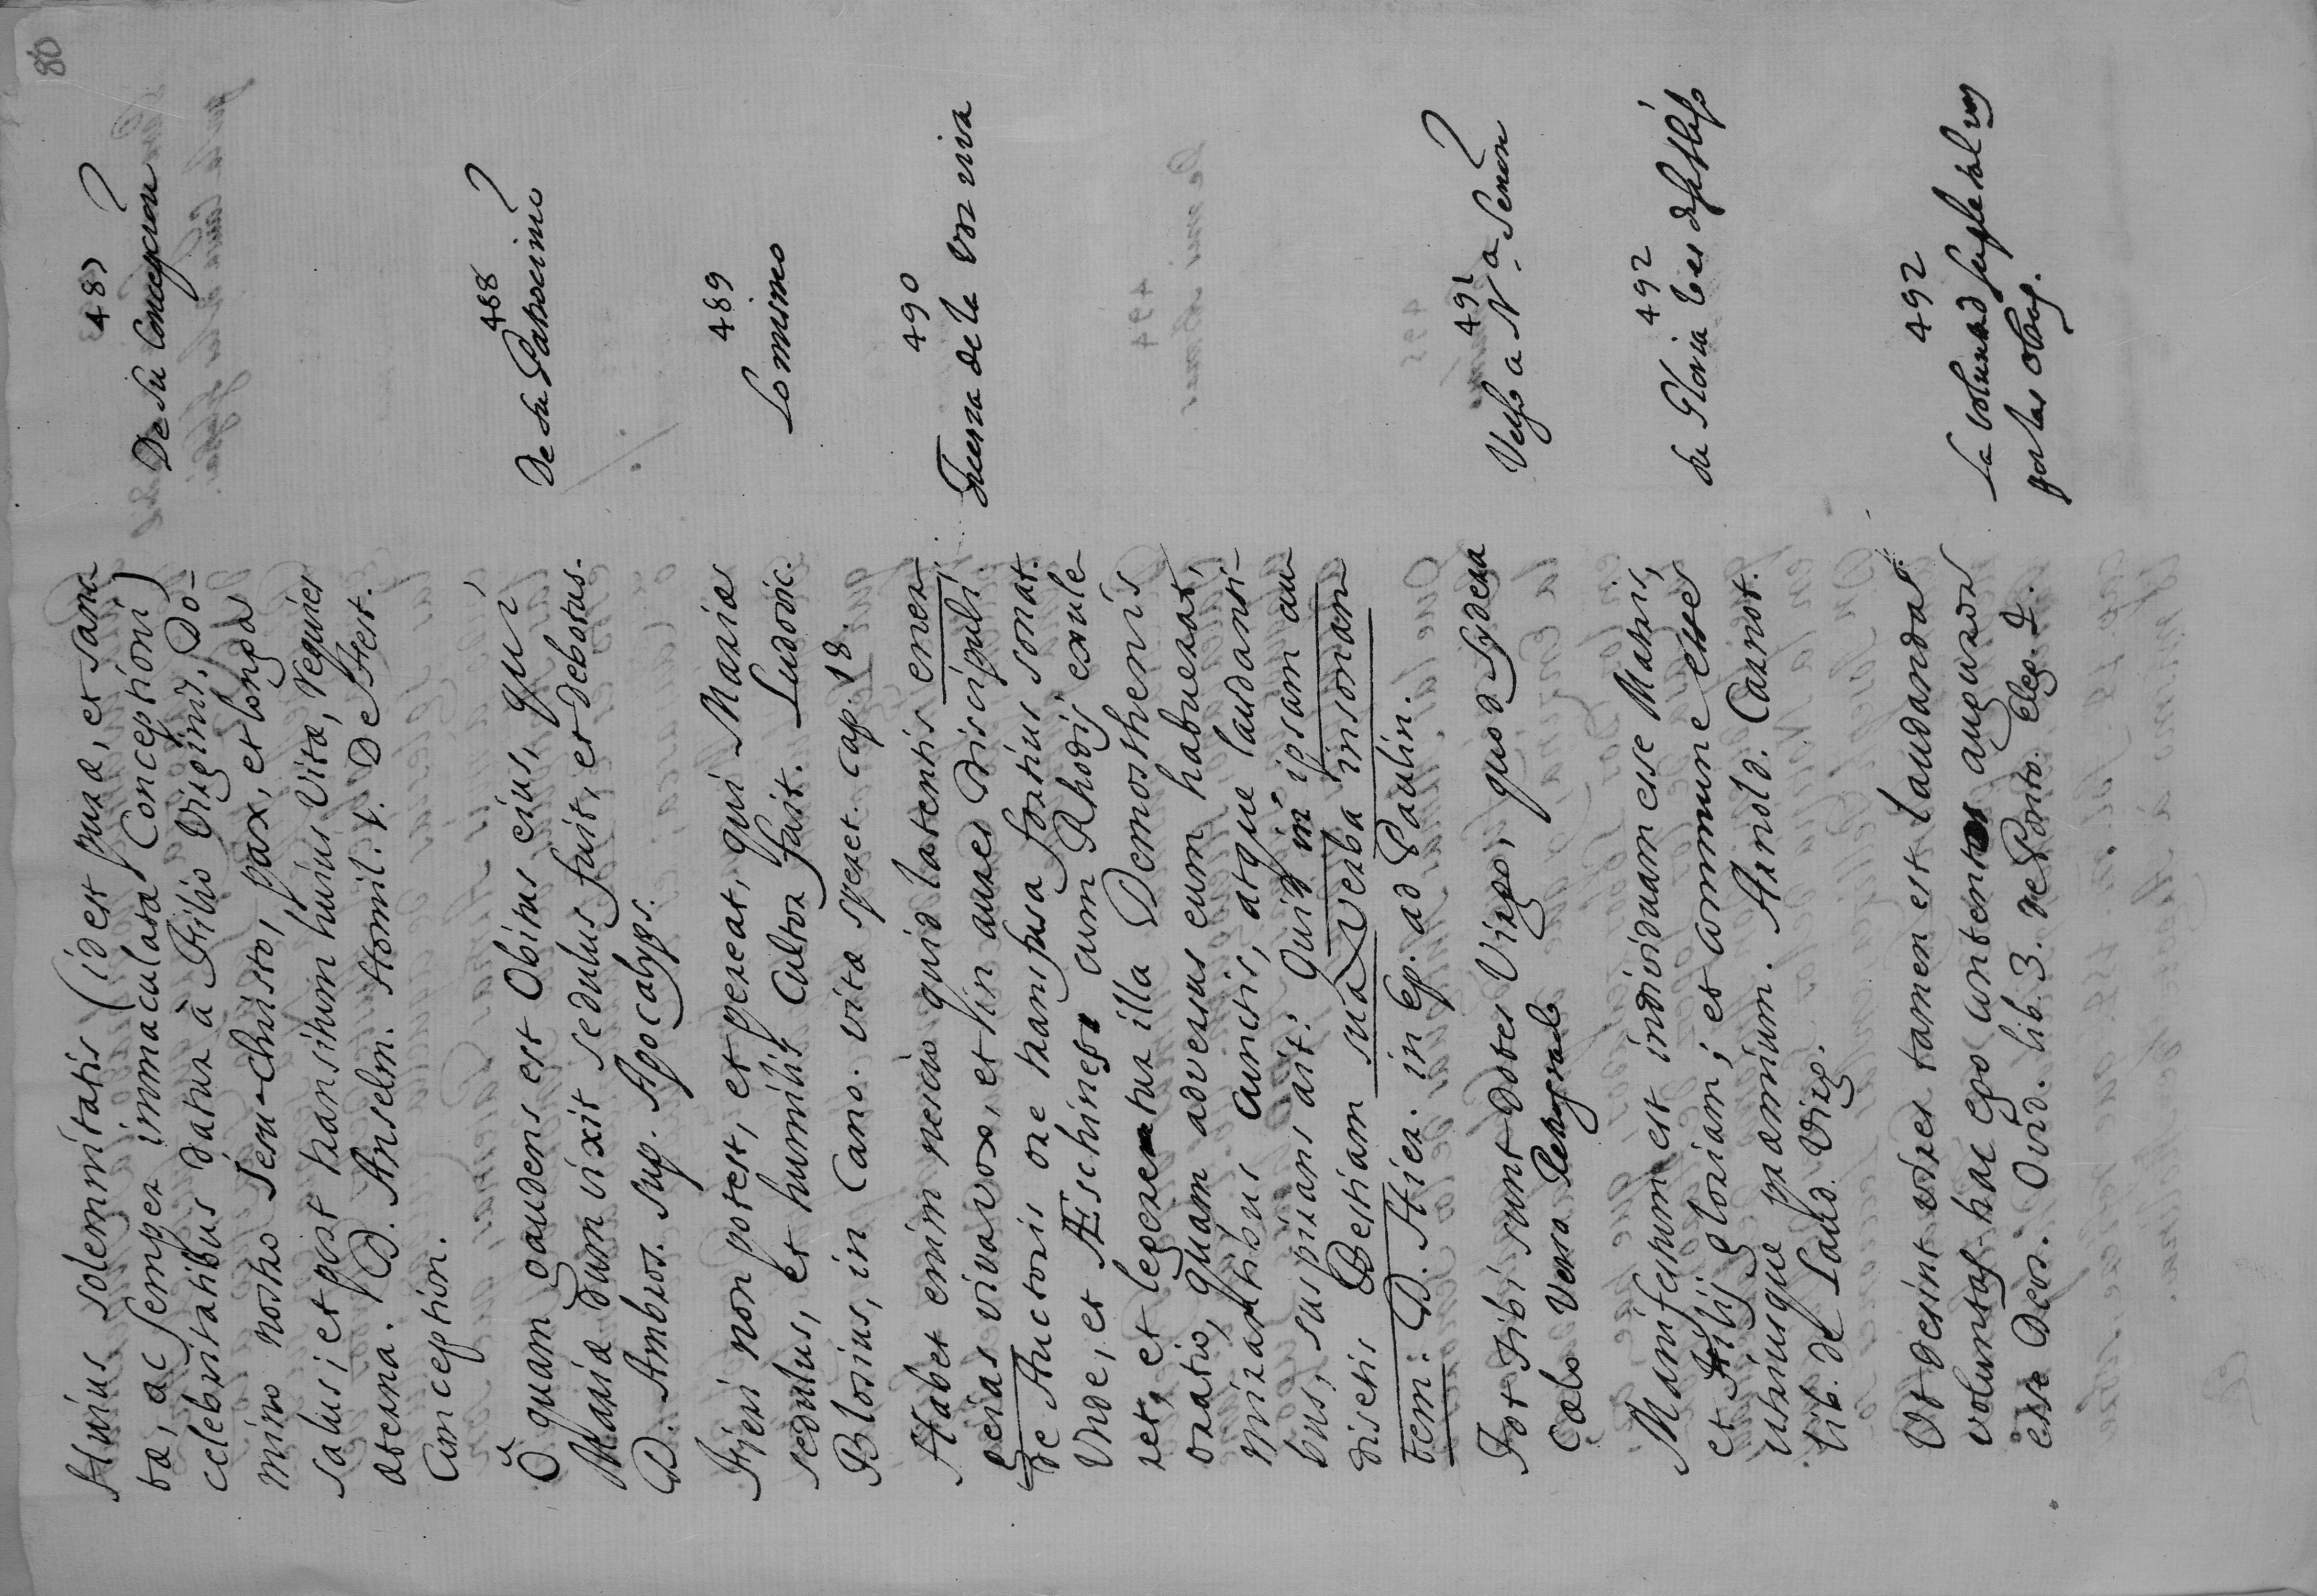 80
Huius solemnitatis (idest puræ, et sanc
tæ, ac semper immaculatæ Conceptioni)
celebritatibus datur à Filio Virginis, Do-
mino nostro Jesu-christo, pax, et longa
salus; et post transitum huius vitæ, requies
æterna. D. Anselm. Homil. 1. De Fest.
Conception.
487
De su Concepcion
O quam gaudens est Obitus eius, qui
Mariæ dum vixit sedulus fuit, et debotus.
D. Ambros. sup. Apocalyps.
488
De su Patrocinio
Fieri non potest, et pereat, qui Mariæ
sedulus, et humilis Cultor fuit. Ludovic.
Blosius, in Cano. vitæ speret. Cap. 18.
489
Lo mismo
Habet enim nescio quid latentis ener
geias viva vox, et hin aures discipuli
de Auctoris ore transfusa fortius sonat.
Unde, et Æschines cum Rhodis exule
ret, et legeretur illa Demosthenis
oratio, quam adversus eum habuerat,
mirantibus cunctis, atque laudanti-
bus, suspirans ait: Quid in ipsam au
disetis Bestiam sua verba insonan
tem: D. Hier. in Ep. ad Paulin.
490
Fuerza de la voz viva
Tot tibi sunt dotes Virgo, quod sydera
Cælo
491
Verso a N.a Señora
Manifestum est individuam esse Matris,
et Filij gloriam; et commune esse
utriusque præmium. Arnold. Carnot.
lib. de Laud. Virg.
492
su Gloria
Ut desint vires tamen est laudanda
voluntas hac ego contentos auguror
esse Deos. Ovid. lib. 3. de Ponto. Eleg. 4.
492
La voluntad suple tal vez
por las obras.